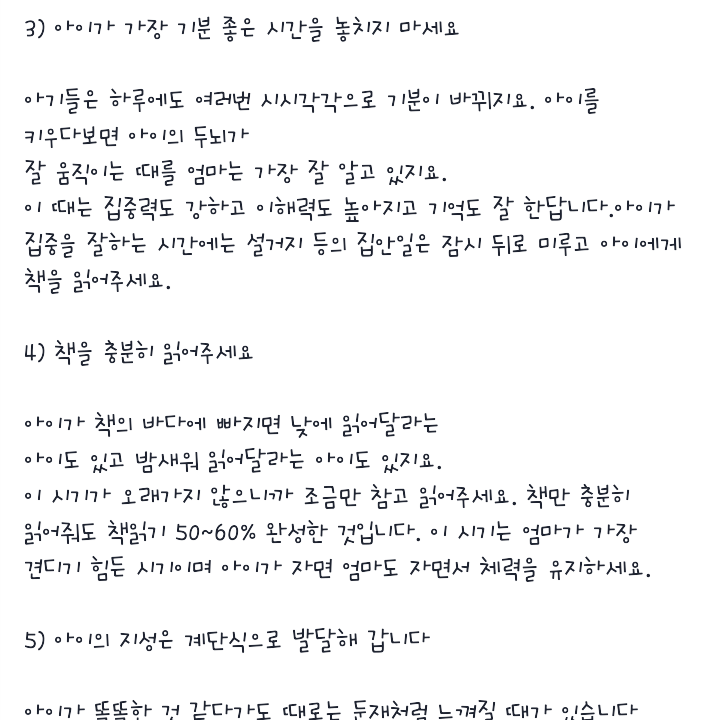 3) 아이가 가장 기분 좋은 시간을 놓치지 마세요
아기들은 하루에도 여러번 시시각각으로 기분이 바뀌지요. 아이를
키우다보면 아이의 두뇌가
잘 움직이는 때를 엄마는 가장 잘 알고 있지요.
이 때는 집중력도 강하고 이해력도 높아지고 기억도 잘 한답니다.아이가
집중을 잘하는 시간에는 설거지 등의 집안일은 잠시 뒤로 미루고 아이에게
책을 읽어주세요.
4) 책을 충분히 읽어주세요
아이가 책의 바다에 빠지면 낮에 읽어달라는
아이도 있고 밤새워 읽어달라는 아이도 있지요.
이 시기가 오래가지 않으니까 조금만 참고 읽어주세요. 책만 충분히
읽어줘도 책읽기 50~60% 완성한 것입니다. 이 시기는 엄마가 가장
견디기 힘든 시기이며 아이가 자면 엄마도 자면서 체력을 유지하세요.
5) 아이의 지성은 계단식으로 발달해 갑니다
아이가 똑똑한 것 같다가도 때로는 둔재처럼 느껴질 때가 있습니다